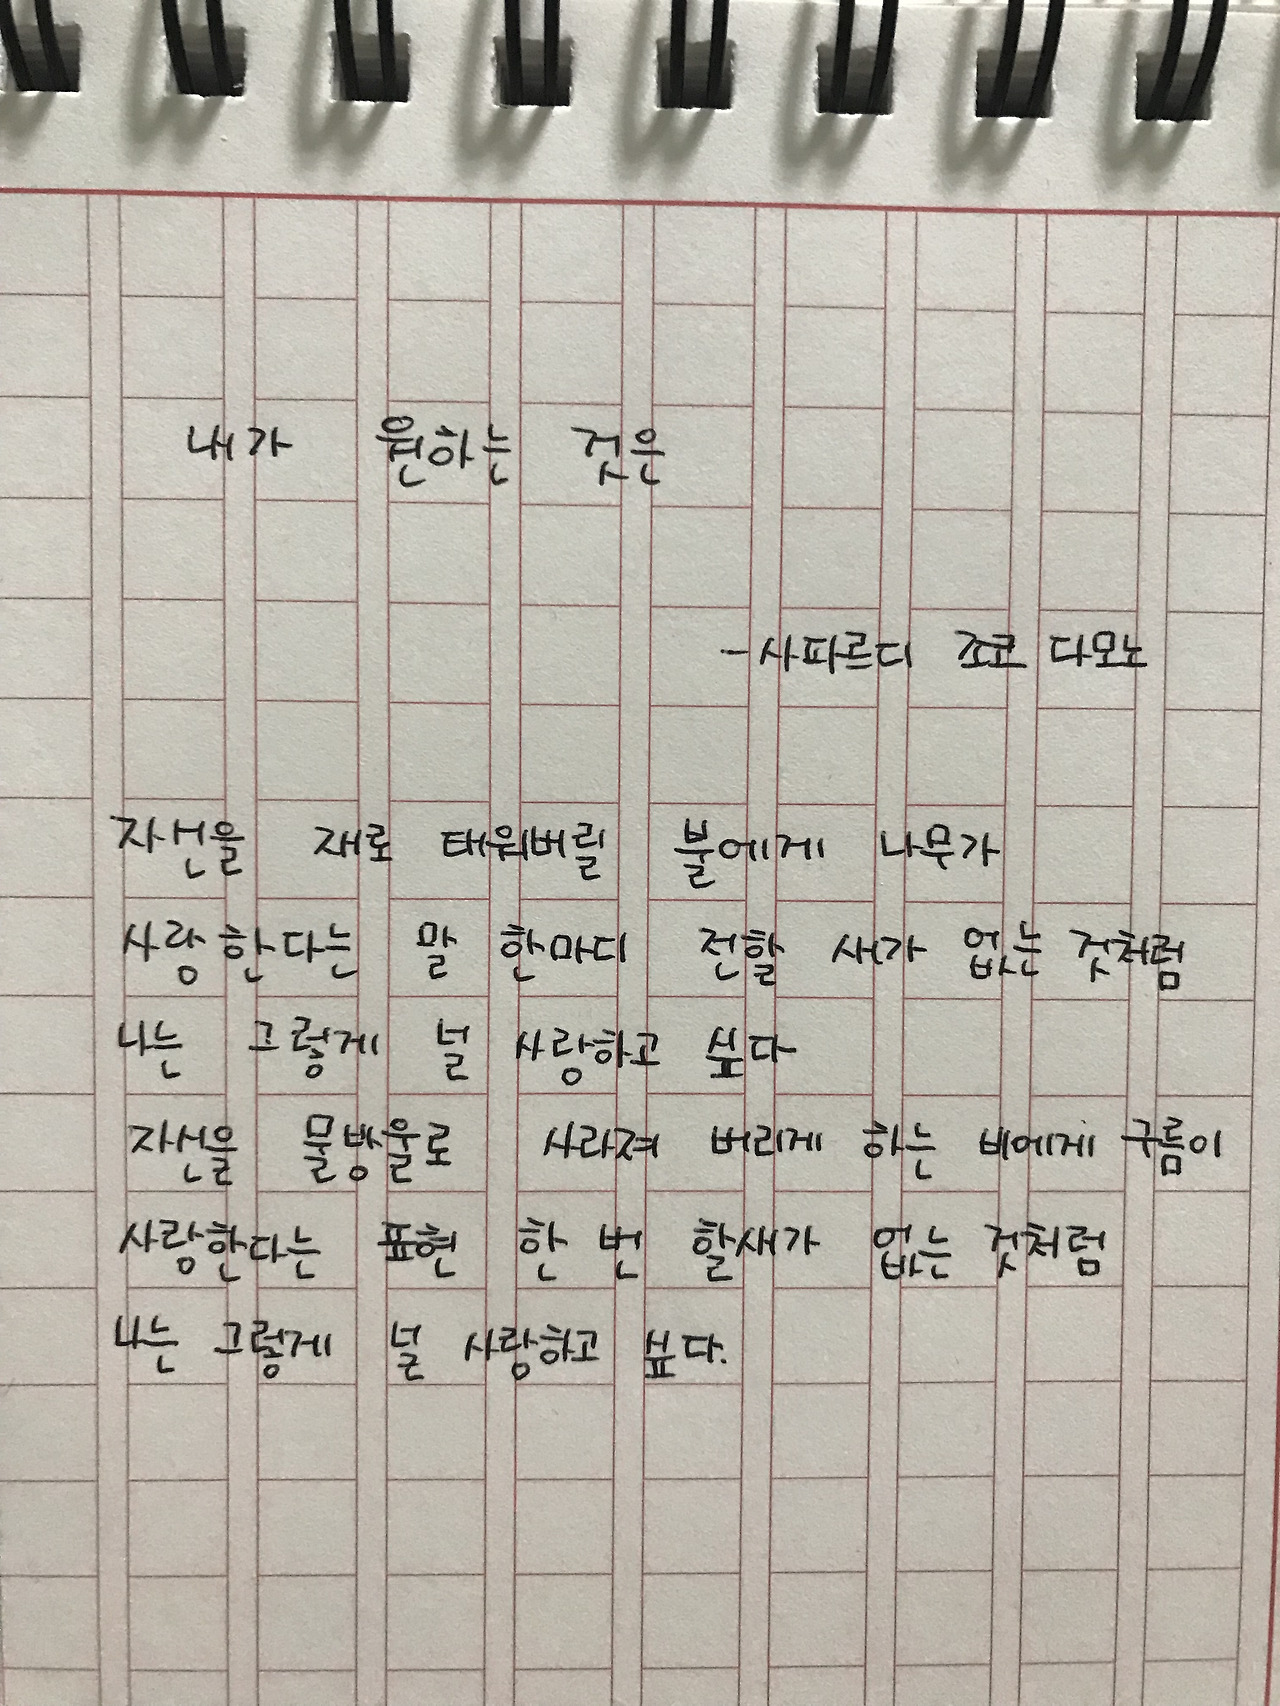 내가 원하는 것은
-사파르디 조코 다모노
자신을 재로 태워버릴 불에게 나무가
사랑한다는 말 한마디 전할 새가 없는 것처럼
나는 그렇게 널 사랑하고 싶다
자신을 물방울로 사라져 버리게 하는 비에게 구름이
사랑한다는 표현 한 번 할새가 없는 것처럼
나는 그렇게 널 사랑하고 싶다.